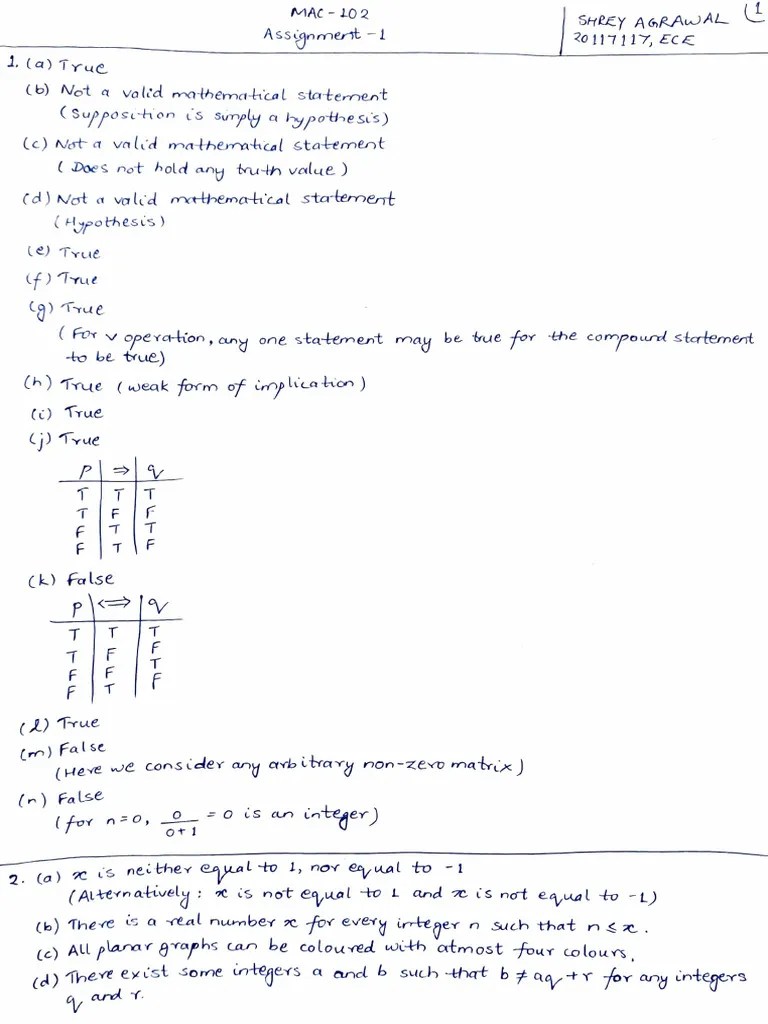 MAC-102
Assignment-1
SHREY AGRAWAL
20117117, ECE
1
1. (a) True
(b) Not a valid mathematical statement
(Supposition is simply a hypothesis)
(c) Not a valid mathematical statement
(Does not hold any truth value)
(d) Not a valid mathematical statement
(Hypothesis)
(e) True
(f) True
(g) True
(For v operation, any one statement may be true for the compound statement
to be true)
(h) True (weak form of implication)
(i) True
(j) True
P ⇒ q
T T T
T F F
F T T
F T F
(k) False
P ⇔ q
T T T
T F F
F F T
F T F
(l) True
(m) False
(Here we consider any arbitrary non-zero matrix)
(n) False
(for n=0, 0/0+1 = 0 is an integer)
2. (a) x is neither equal to 1, nor equal to -1
(Alternatively: x is not equal to 1 and x is not equal to -1)
(b) There is a real number x for every integer n such that n ≤ x.
(c) All planar graphs can be coloured with atmost four colours.
(d) There exist some integers a and b such that b ≠ aq + r for any integers
q and r.